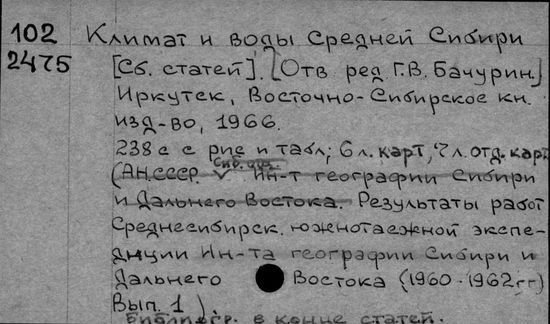 102 Климат и воды Средней Сибири
2475 [Сб. статей]. [Отв ред Г.В. Бачурин]
Иркутск, Восточно-Сибирское кн.
изд-во, 1966.
238 с с рис и табл; 6 л. карт, 7 л. отд. карт
Сиб. отд.
(АН.СССР. Ин-т географии Сибири
и Дальнего Востока. Результаты работ
Среднесибирск. южнотаежной экспе-
диции Ин-та географии Сибири и
Дальнего Востока (1960-1962гг)
Вып. 1).
Библиогр. в конце статей.